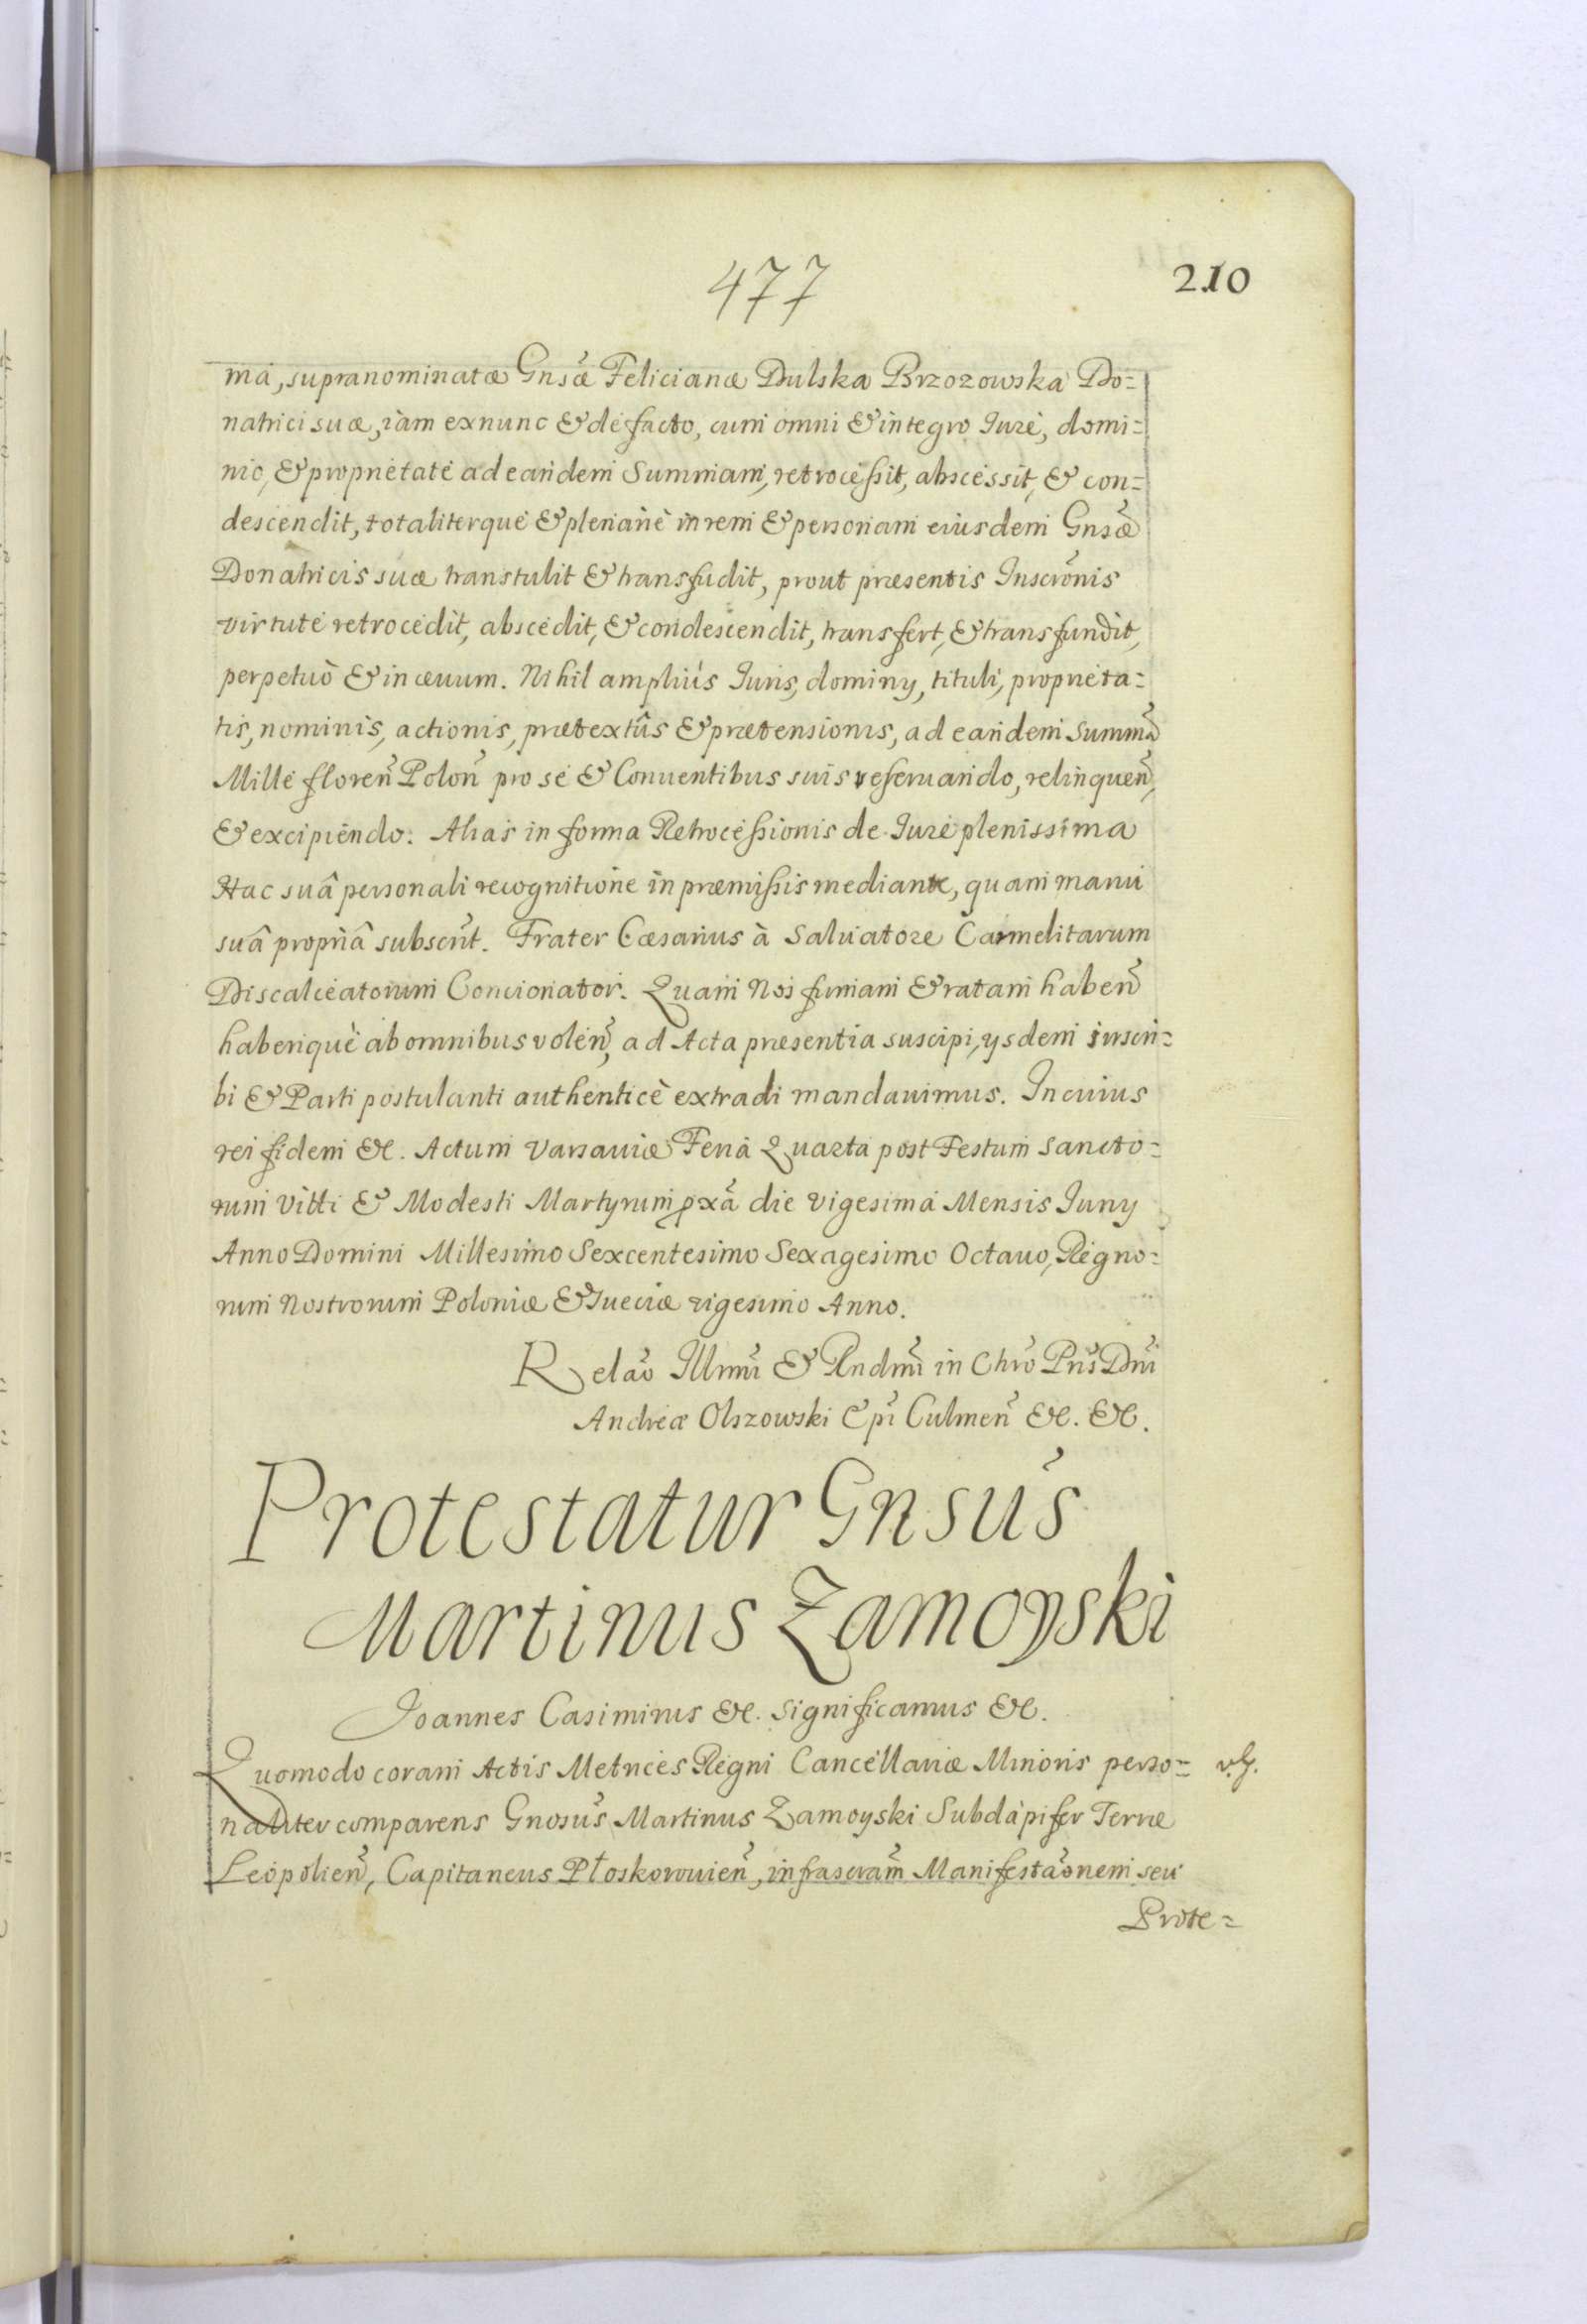 477
210
ma, supranominatæ Gnsæ Felicianæ Dulska Brzozowska Do=
natrici suæ, iàm exnunc & de facto, cum omni & integro Iure, domi=
nio, & proprietate ad eandem Summam, retrocessit, abscessit, & con=
descendit, totaliterque & plenariè in rem & personam eiusdem Gnsæ
Donatricis suæ transtulit & transfudit, prout præsentis Inscrõnis
virtute retrocedit, abscedit, & condescendit, transfert, & transfundit,
perpetuò & in æuum. Nihil ampliùs Iuris, dominy, tituli, proprieta=
tis, nominis, actionis, prætextûs & prætensionis, ad eandem Summã
Mille floreñ Poloñ pro se & Conuentibus suis reseruando, relinqueñ,
& excipiendo. Alias in forma Retrocessionis de Iure plenissima
Hac suâ personali recognitione in præmissis mediante, quam manu
suâ propriâ subscrit. Frater Cæsarius à Saluatore Carmelitarum
Discalceatorum Concionator. Quam Nos firmam & ratam habeñ
haberique ab omnibus voleñ, ad Acta præsentia suscipi, ysdem inscri=
bi & Parti postulanti authenticè extradi mandauimus. In cuius
rei fidem &c. Actum Varsauiæ Feria Quarta post Festum Sancto=
rum Vitti & Modesti Martyrum pxã die vigesima Mensis Iuny
Anno Domini Millesimo Sexcentesimo Sexagesimo Octauo, Regno=
rum Nostrorum Poloniæ & Sueciæ vigesimo Anno.
Relaõ Illmi & Rndmi in Chro Pris Dni
Andreæ Olszowski Epi Culmeñ &c. &c.
Protestatur Gnsus
Martinus Zamoyski
Ioannes Casimirus &c. significamus &c.
Quomodo coram Actis Metrices Regni Cancellariæ Minoris perso=
naliter comparens Gnosus Martinus Zamoyski Subdapifer Terræ
Leopolieñ, Capitaneus Płoskorouieñ, infrascram Manifestaõnem seu
Prote=